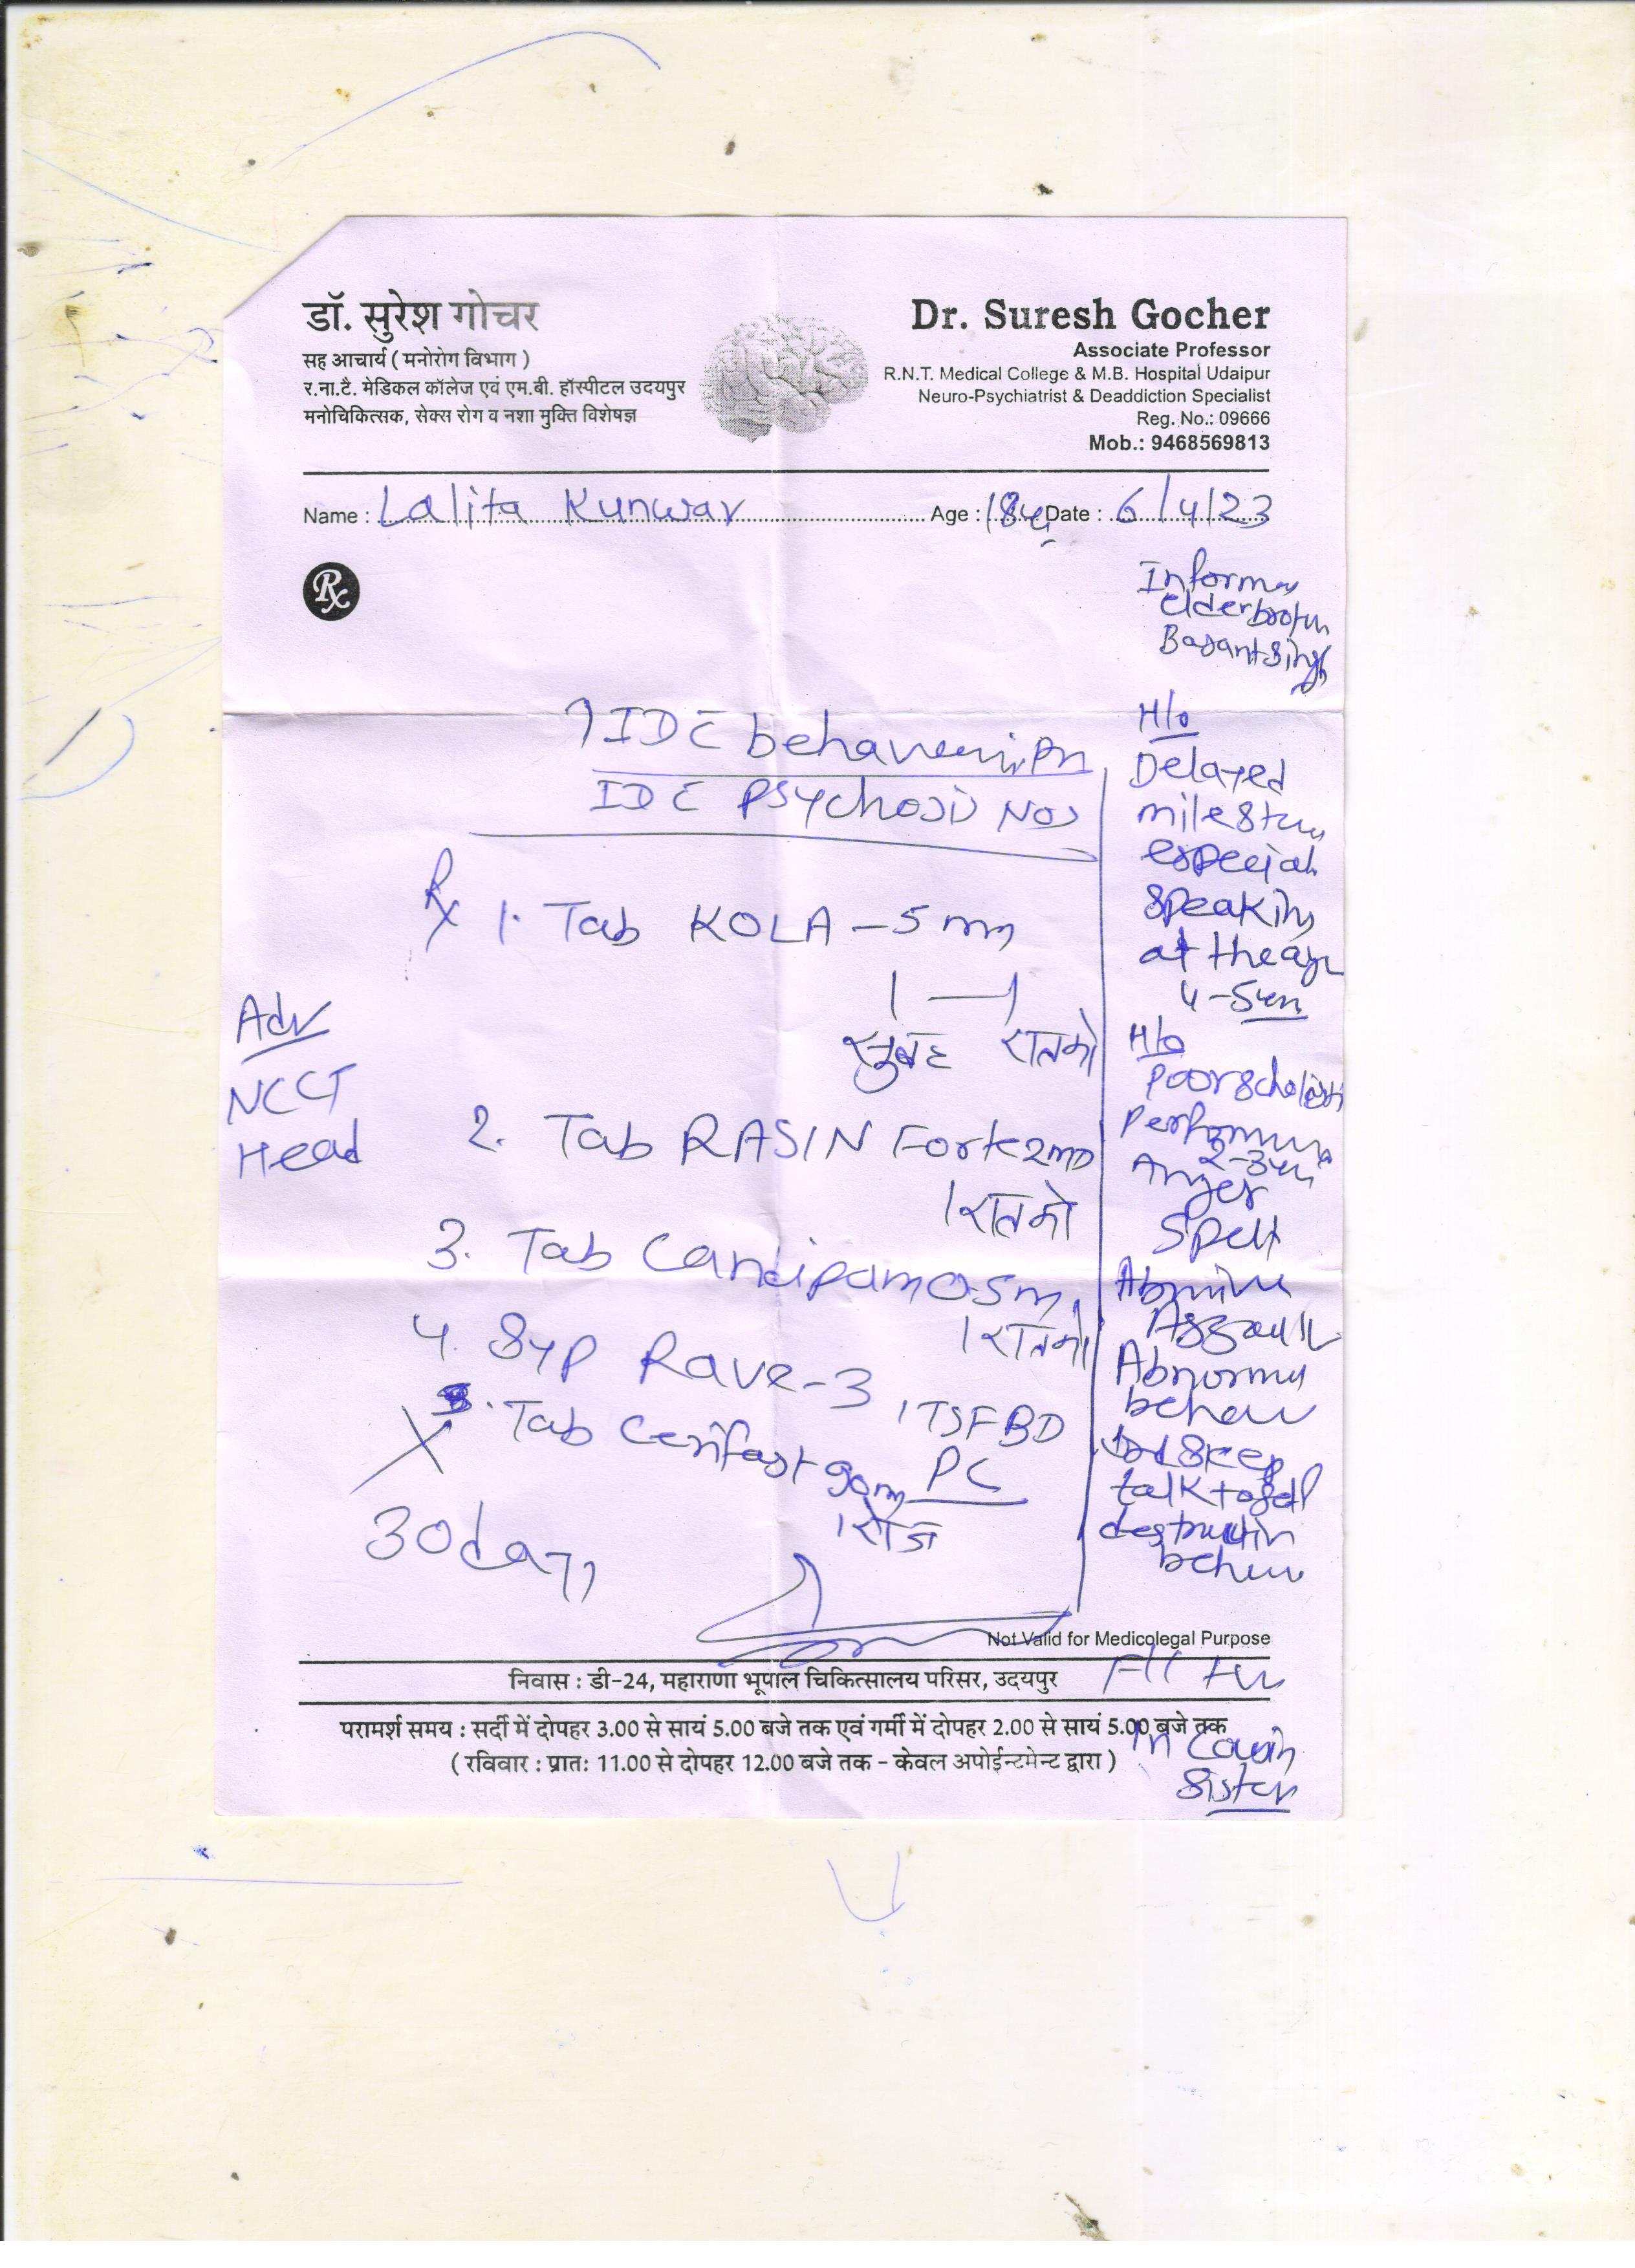 डॉ. सुरेश गोचर
सह आचार्य ( मनोरोग विभाग )
र.ना.टै. मेडिकल कॉलेज एवं एम.बी. हॉस्पीटल उदयपुर
मनोचिकित्सक, सेक्स रोग व नशा मुक्ति विशेषज्ञ
Dr. Suresh Gocher
Associate Professor
R.N.T. Medical College & M.B. Hospital Udaipur
Neuro-Psychiatrist & Deaddiction Specialist
Reg. No.: 09666
Mob.: 9468569813
Name : Lalita Kunwar Age : 18 Date : 6/4/23
Rx
elder
Basant Singh
IDC
IDC Psychosis NOS
Rx 1. Tab KOLA – 5
1 — 1
सुबह रातको
2. Tab RASIN Forte 2
1 रातको
3. Tab
1 रातको
4. Syp Rave-3
1 TSF BD
PC
5. Tab
1 रोज
30 days
Adv
NCCT
Head
H/o
Delayed
especial
speaking
at the age
4-5
H/o
Poor
2-3
Anger
Spell
Abnormal
talk to self
Not Valid for Medicolegal Purpose
निवास : डी-24, महाराणा भूपाल चिकित्सालय परिसर, उदयपुर
परामर्श समय : सर्दी में दोपहर 3.00 से सायं 5.00 बजे तक एवं गर्मी में दोपहर 2.00 से सायं 5.00 बजे तक
( रविवार : प्रातः 11.00 से दोपहर 12.00 बजे तक - केवल अपोईन्टमेन्ट द्वारा )
in Cousin
Sister